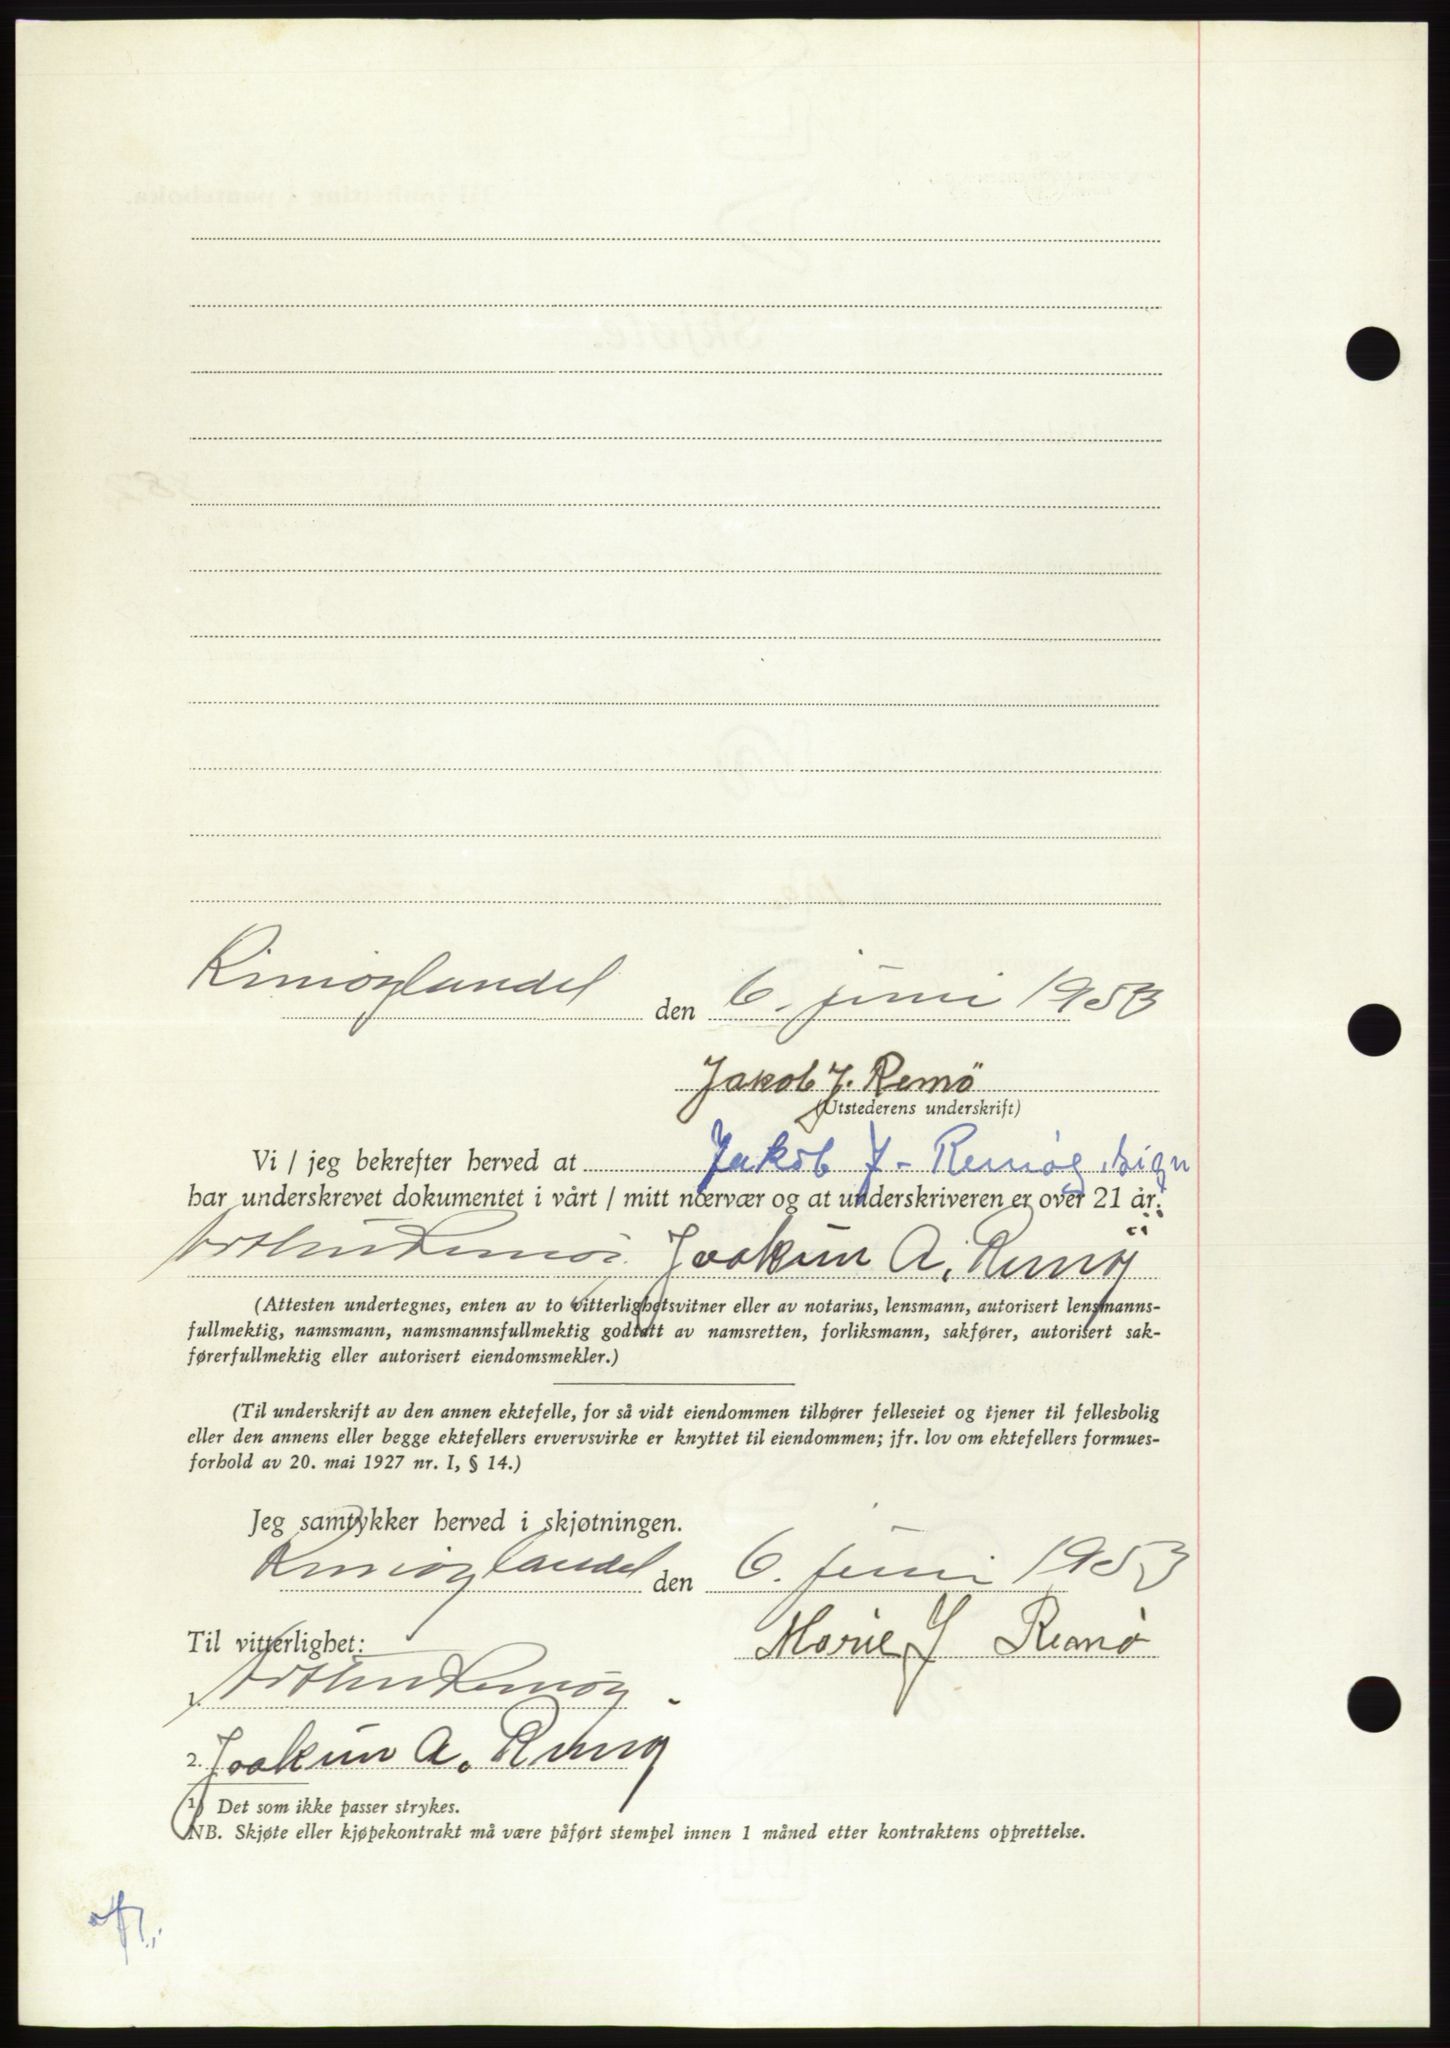 Rimöylandet den 6. juni 1953
Jakob J. Remö
(Utstederens underskrift)
Vi / jeg bekrefter herved at Jakob J. Remøy, sign
har underskrevet dokumentet i vårt / mitt nærvær og at underskriveren er over 21 år.
Arthur Remöy. Joakim A. Remöy
(Attesten undertegnes, enten av to vitterlighetsvitner eller av notarius, lensmann, autorisert lensmanns-
fullmektig, namsmann, namsmannsfullmektig godtatt av namsretten, forliksmann, sakfører, autorisert sak-
førerfullmektig eller autorisert eiendomsmekler.)
(Til underskrift av den annen ektefelle, for så vidt eiendommen tilhører felleseiet og tjener til fellesbolig
eller den annens eller begge ektefellers ervervsvirke er knyttet til eiendommen; jfr. lov om ektefellers formues-
forhold av 20. mai 1927 nr. I, § 14.)
Jeg samtykker herved i skjøtningen.
Rimöylandet den 6. juni 1953
Til vitterlighet: Marie J Remö
1. Arthur Remöy
2. Joakim A. Remöy
1) Det som ikke passer strykes.
NB. Skjøte eller kjøpekontrakt må være påført stempel innen 1 måned etter kontraktens opprettelse.